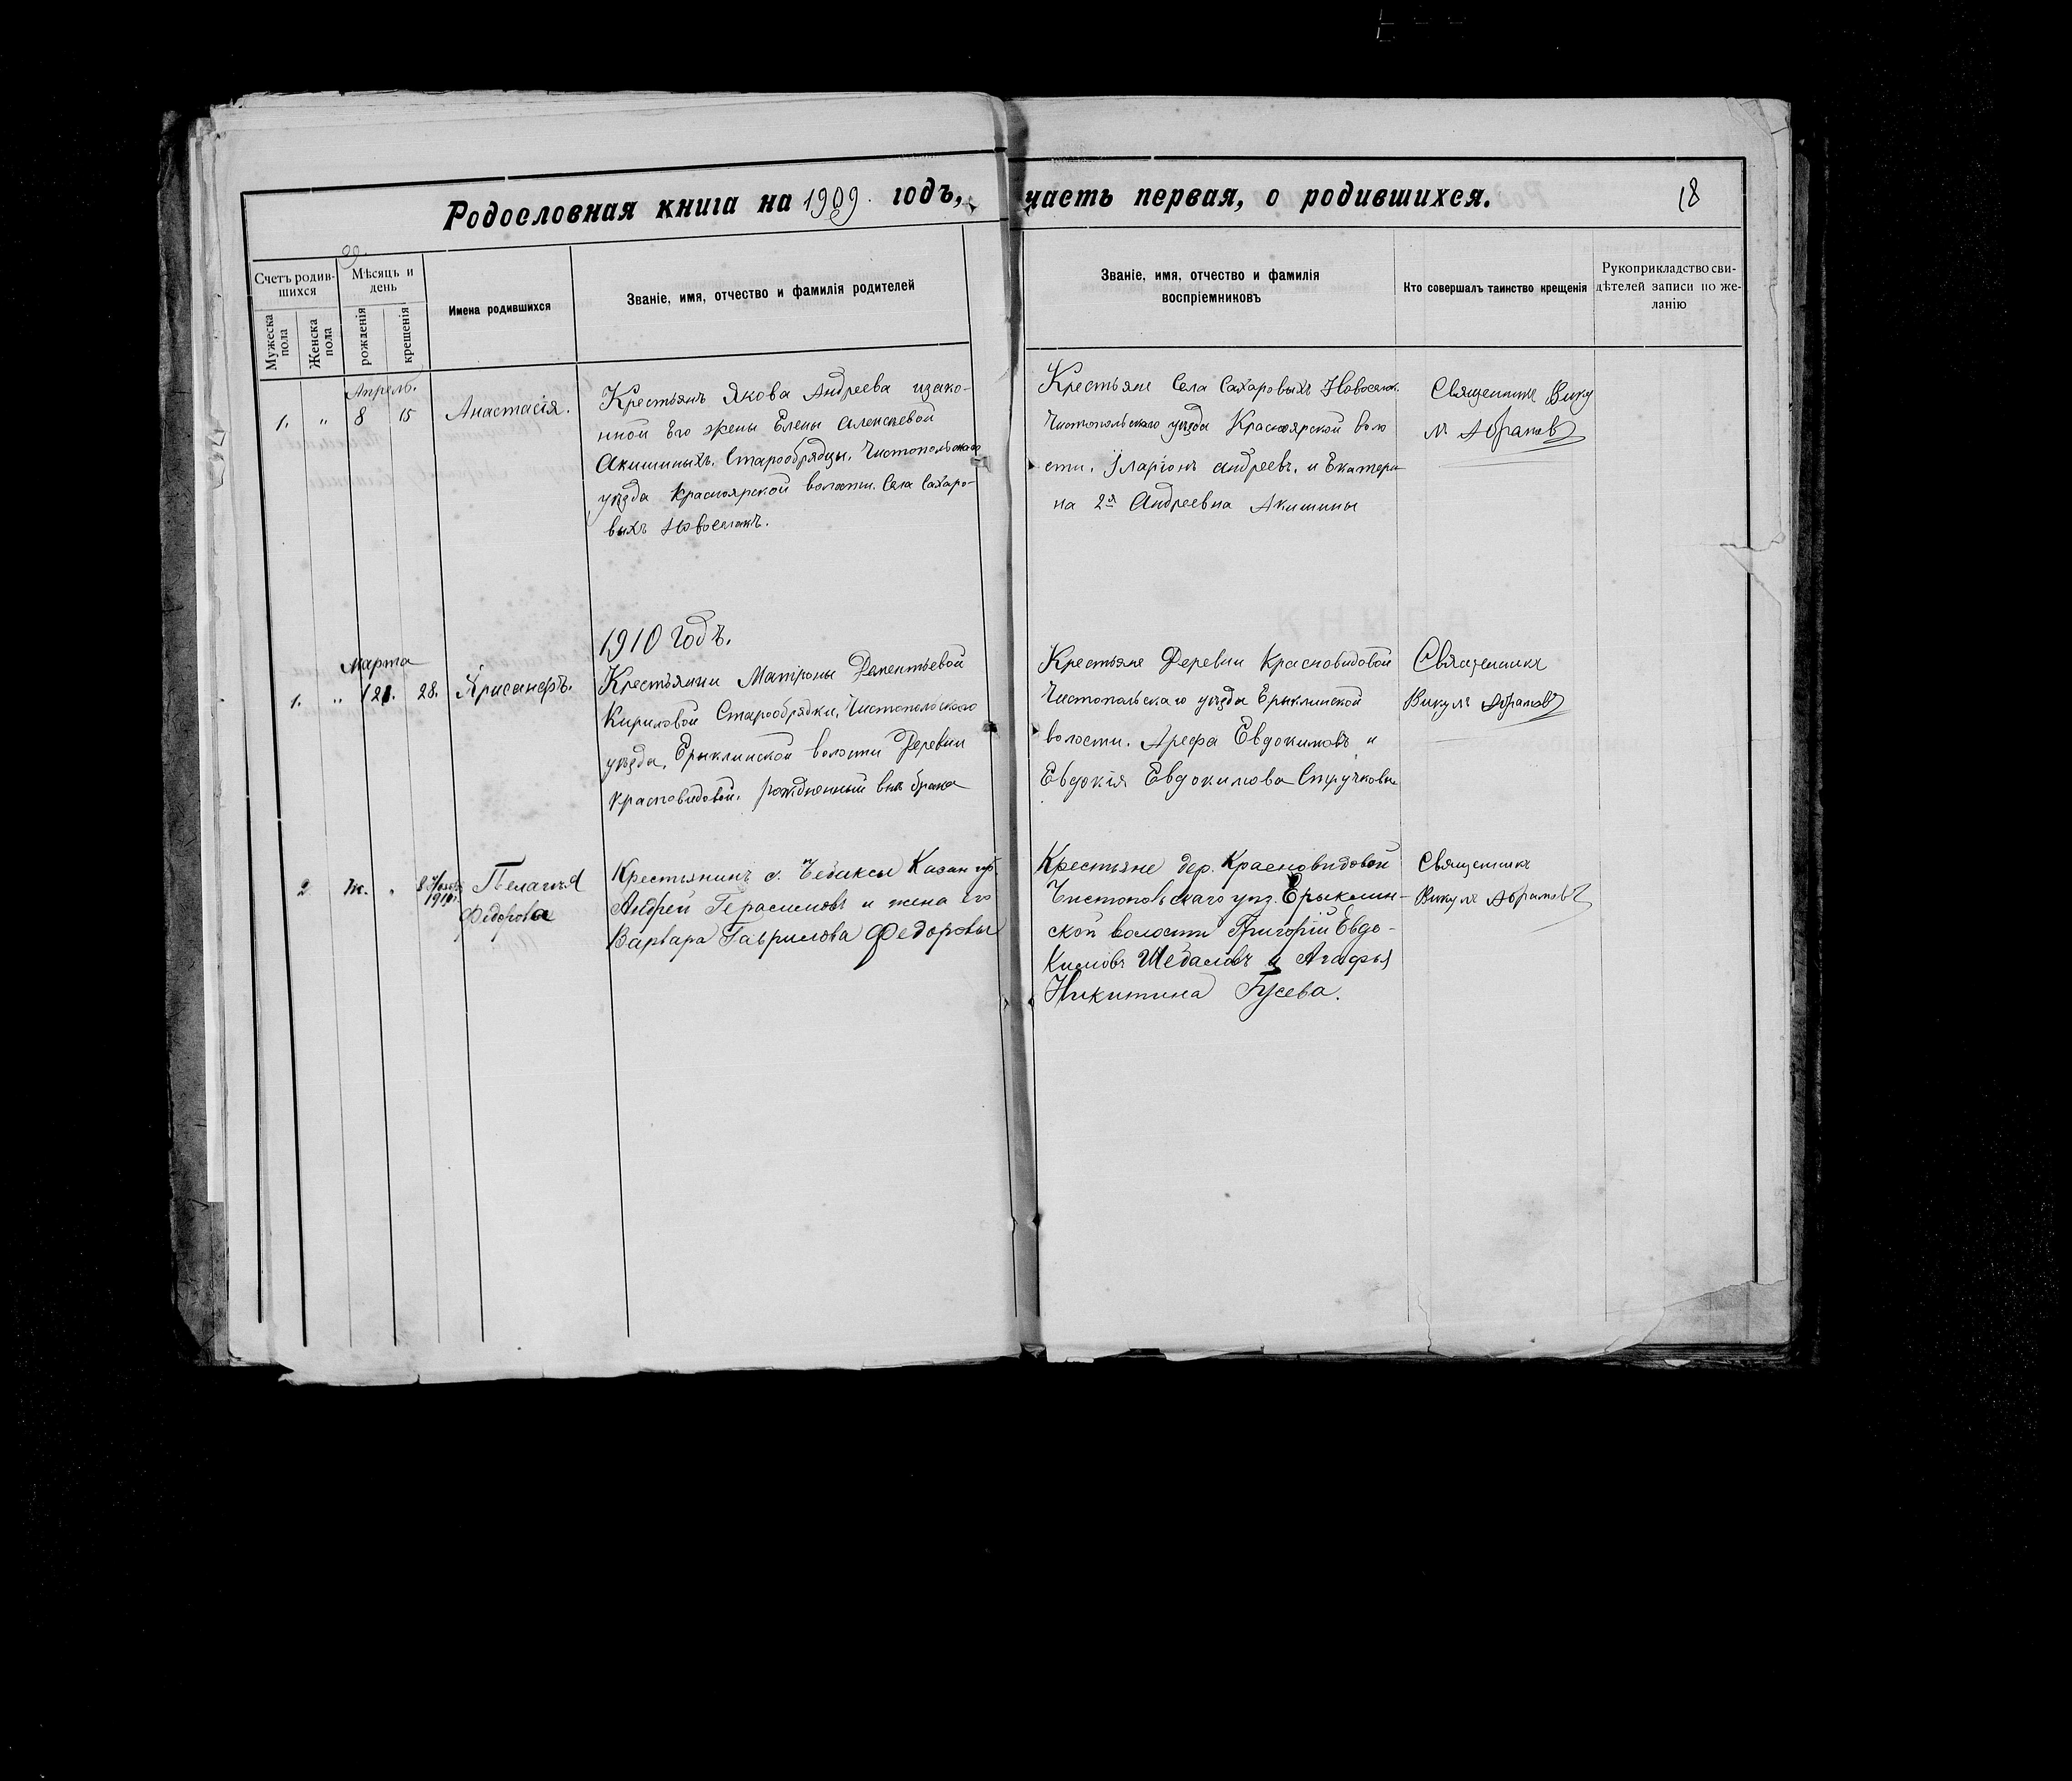 Родословная книга на 1909. годъ, часть первая, о родившихся.
18
Счетъ родив-
шихся
Мѣсяцъ и
день
Имена родившихся
Званіе, имя, отчество и фамилія родителей
Званіе, имя, отчество и фамилія
воспріемниковъ
Кто совершалъ таинство крещенія
Рукоприкладство сви-
дѣтелей записи по же-
ланію
Мужеска
пола
Женска
пола
рожденія
крещенія
Апрель.
1. " 8 15 Анастасія.
Крестьянъ Якова Андреева изако-
нной Его жены Елены Алексѣевой
Акишиныхъ. Старообрядцы. Чистопольскаго
уѣзда Красноярской волости. Села Сахаро-
выхъ Новоселокъ.
Крестьяне Села Сахаровыхъ Новоселок.
Чистопольскаго уѣзда Красноярской воло
сти. Іларіонъ Андреевъ. и Екатери
на 2я Андреевна Акишины
Священникъ Вику
лъ Абрамов
1910 Годъ.
Марта
1. " 121. 28. Хрисанфъ.
Крестьянки Матроны Дементьевой
Кириловой Старообрядки, Чистопольскаго
уѣзда, Ерыклинской волости Деревни
Красновидовой. рожденный внѣ брака
Крестьяне Деревни Красновидовой
Чистопольскаго уѣзда Ерыклинской
волости. Арефа Евдокимовъ и
Евдокія Евдокимова Стручковы
Священникъ
Викулъ Абрамов
2 ж. " 8 Ноября
1910 г.
Пелагія
Федорова
Крестьянинъ с. Чебаксы Казан губ.
Андрей Герасимовъ и жена его
Варвара Гаврилова Федоровы
Крестьяне дер. Красновидовой
Чистопольскаго уѣз. Ерыклин-
ской волости Григорій Евдо-
кимовъ Шебаловъ и Агафья
Никитина Гусева.
Священникъ
Викулъ Абрамовъ